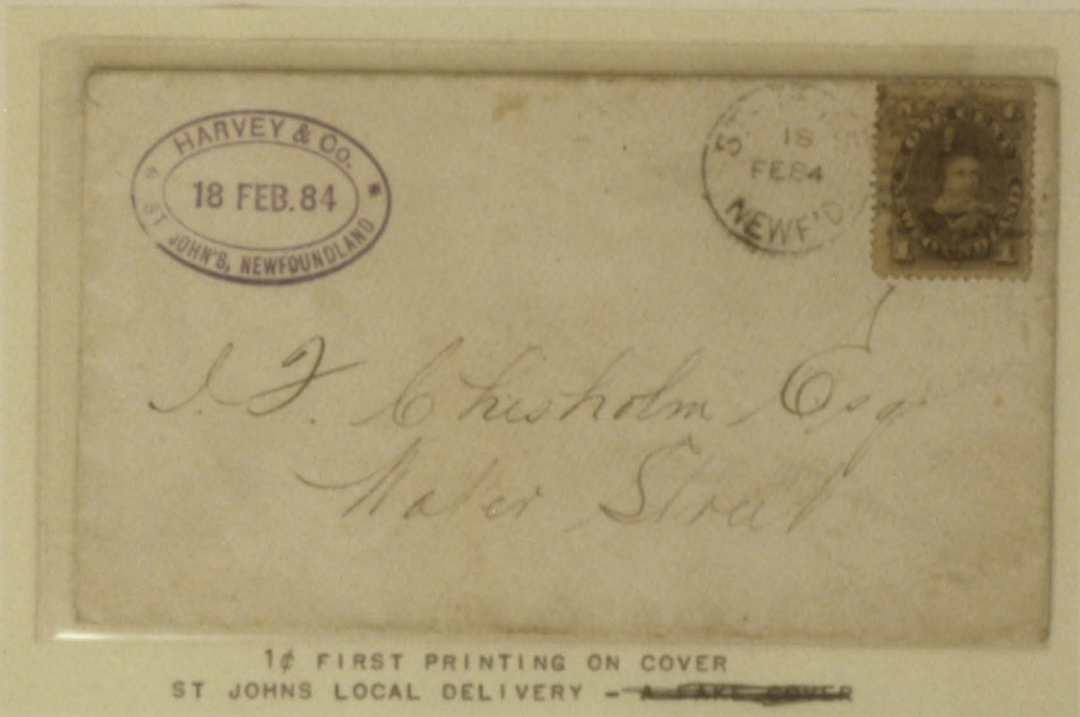 HARVEY & Co.
18 FEB. 84
ST JOHN'S, NEWFOUNDLAND
18
FE84
NEWF'D
1 1
J. F. Chisholm Esqr
Water Street
1¢ FIRST PRINTING ON COVER
ST JOHNS LOCAL DELIVERY - A FAKE COVER